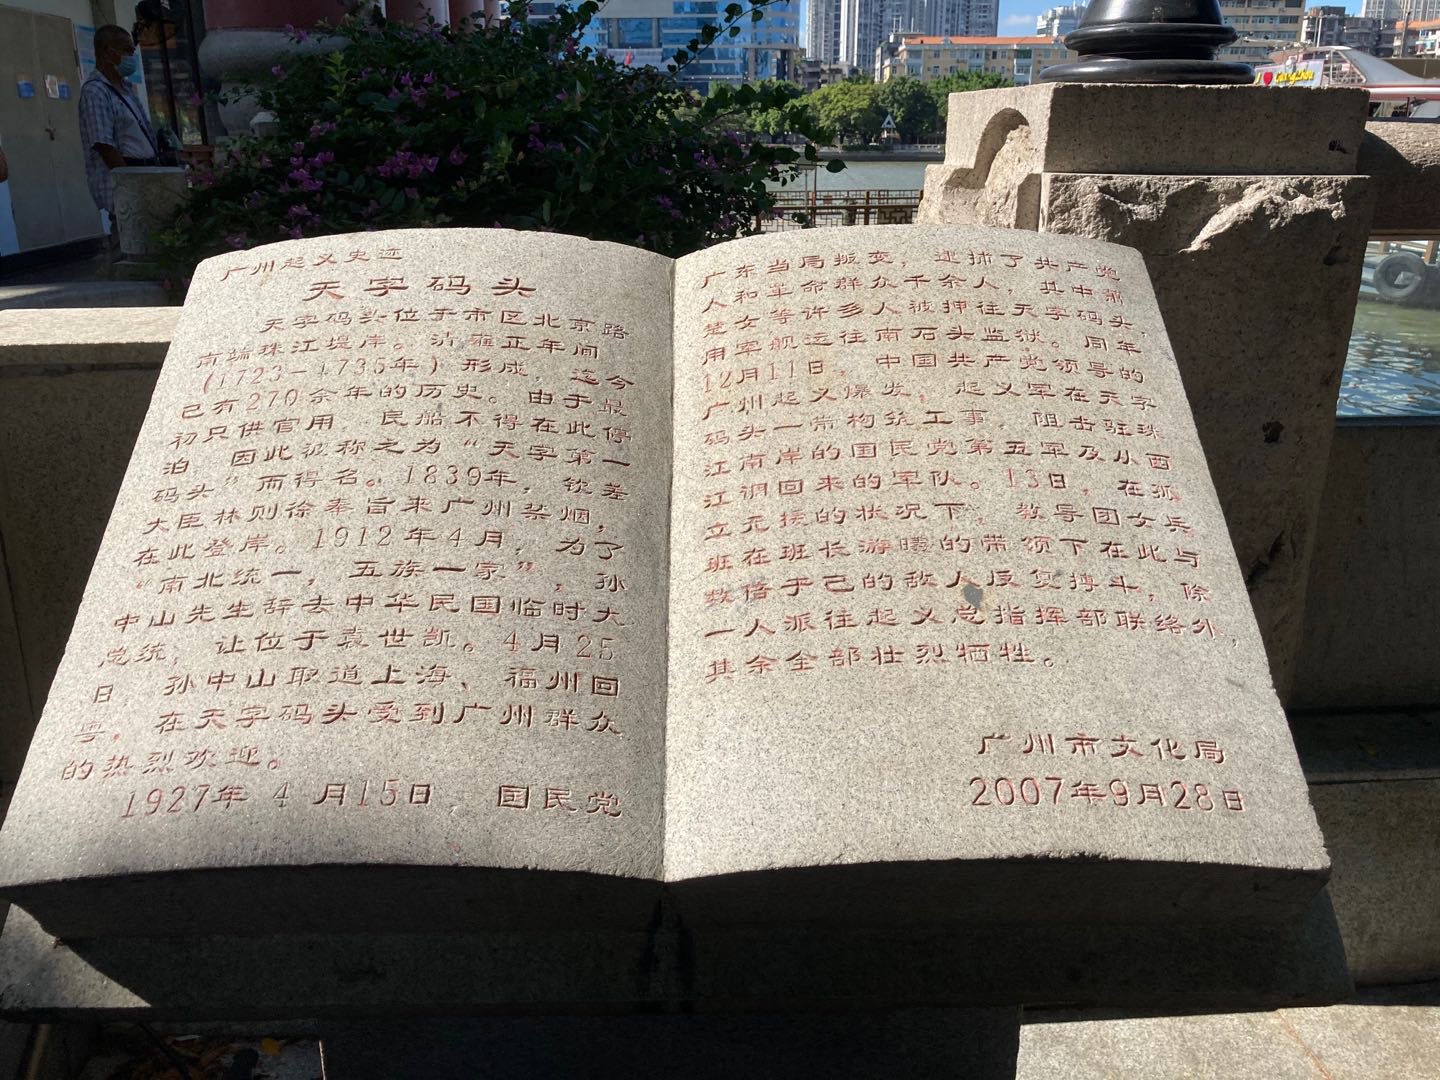 广州起义史迹
天字码头
天字码头位于市区北京路
南端珠江堤岸。清雍正年间
(1723-1735年)形成，迄今
已有270余年的历史。由于最
初只供官用，民船不得在此停
泊，因此被称之为“天字第一
码头”而得名。1839年，钦差
大臣林则徐奉旨来广州禁烟，
在此登岸。1912年4月，为了
“南北统一，五族一家”，孙
中山先生辞去中华民国临时大
总统，让位于袁世凯。4月25
日，孙中山取道上海、福州回
粤，在天字码头受到广州群众
的热烈欢迎。
1927年4月15日，国民党
广东当局叛变，逮捕了共产党
人和革命群众千余人，其中萧
楚女等许多人被押往天字码头，
用军舰运往南石头监狱。同年
12月11日，中国共产党领导的
广州起义爆发，起义军在天字
码头一带构筑工事，阻击驻珠
江南岸的国民党第五军及从西
江调回来的军队。13日，在孤
立无援的状况下，教导团女兵
班在班长游曦的带领下在此与
数倍于己的敌人反复搏斗，除
一人派往起义总指挥部联络外，
其余全部壮烈牺牲。
广州市文化局
2007年9月28日
I ❤ Guangzhou